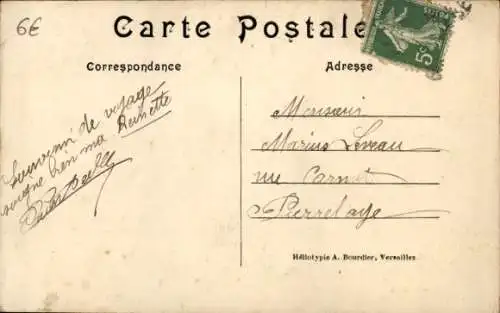 6€
Carte Postale
5c
Correspondance
Adresse
Souvenir de voyage
soigne bien ma
Monsieur
Marius
rue Carnot
Pierrelaye
Héliotypie A. Bourdier, Versailles